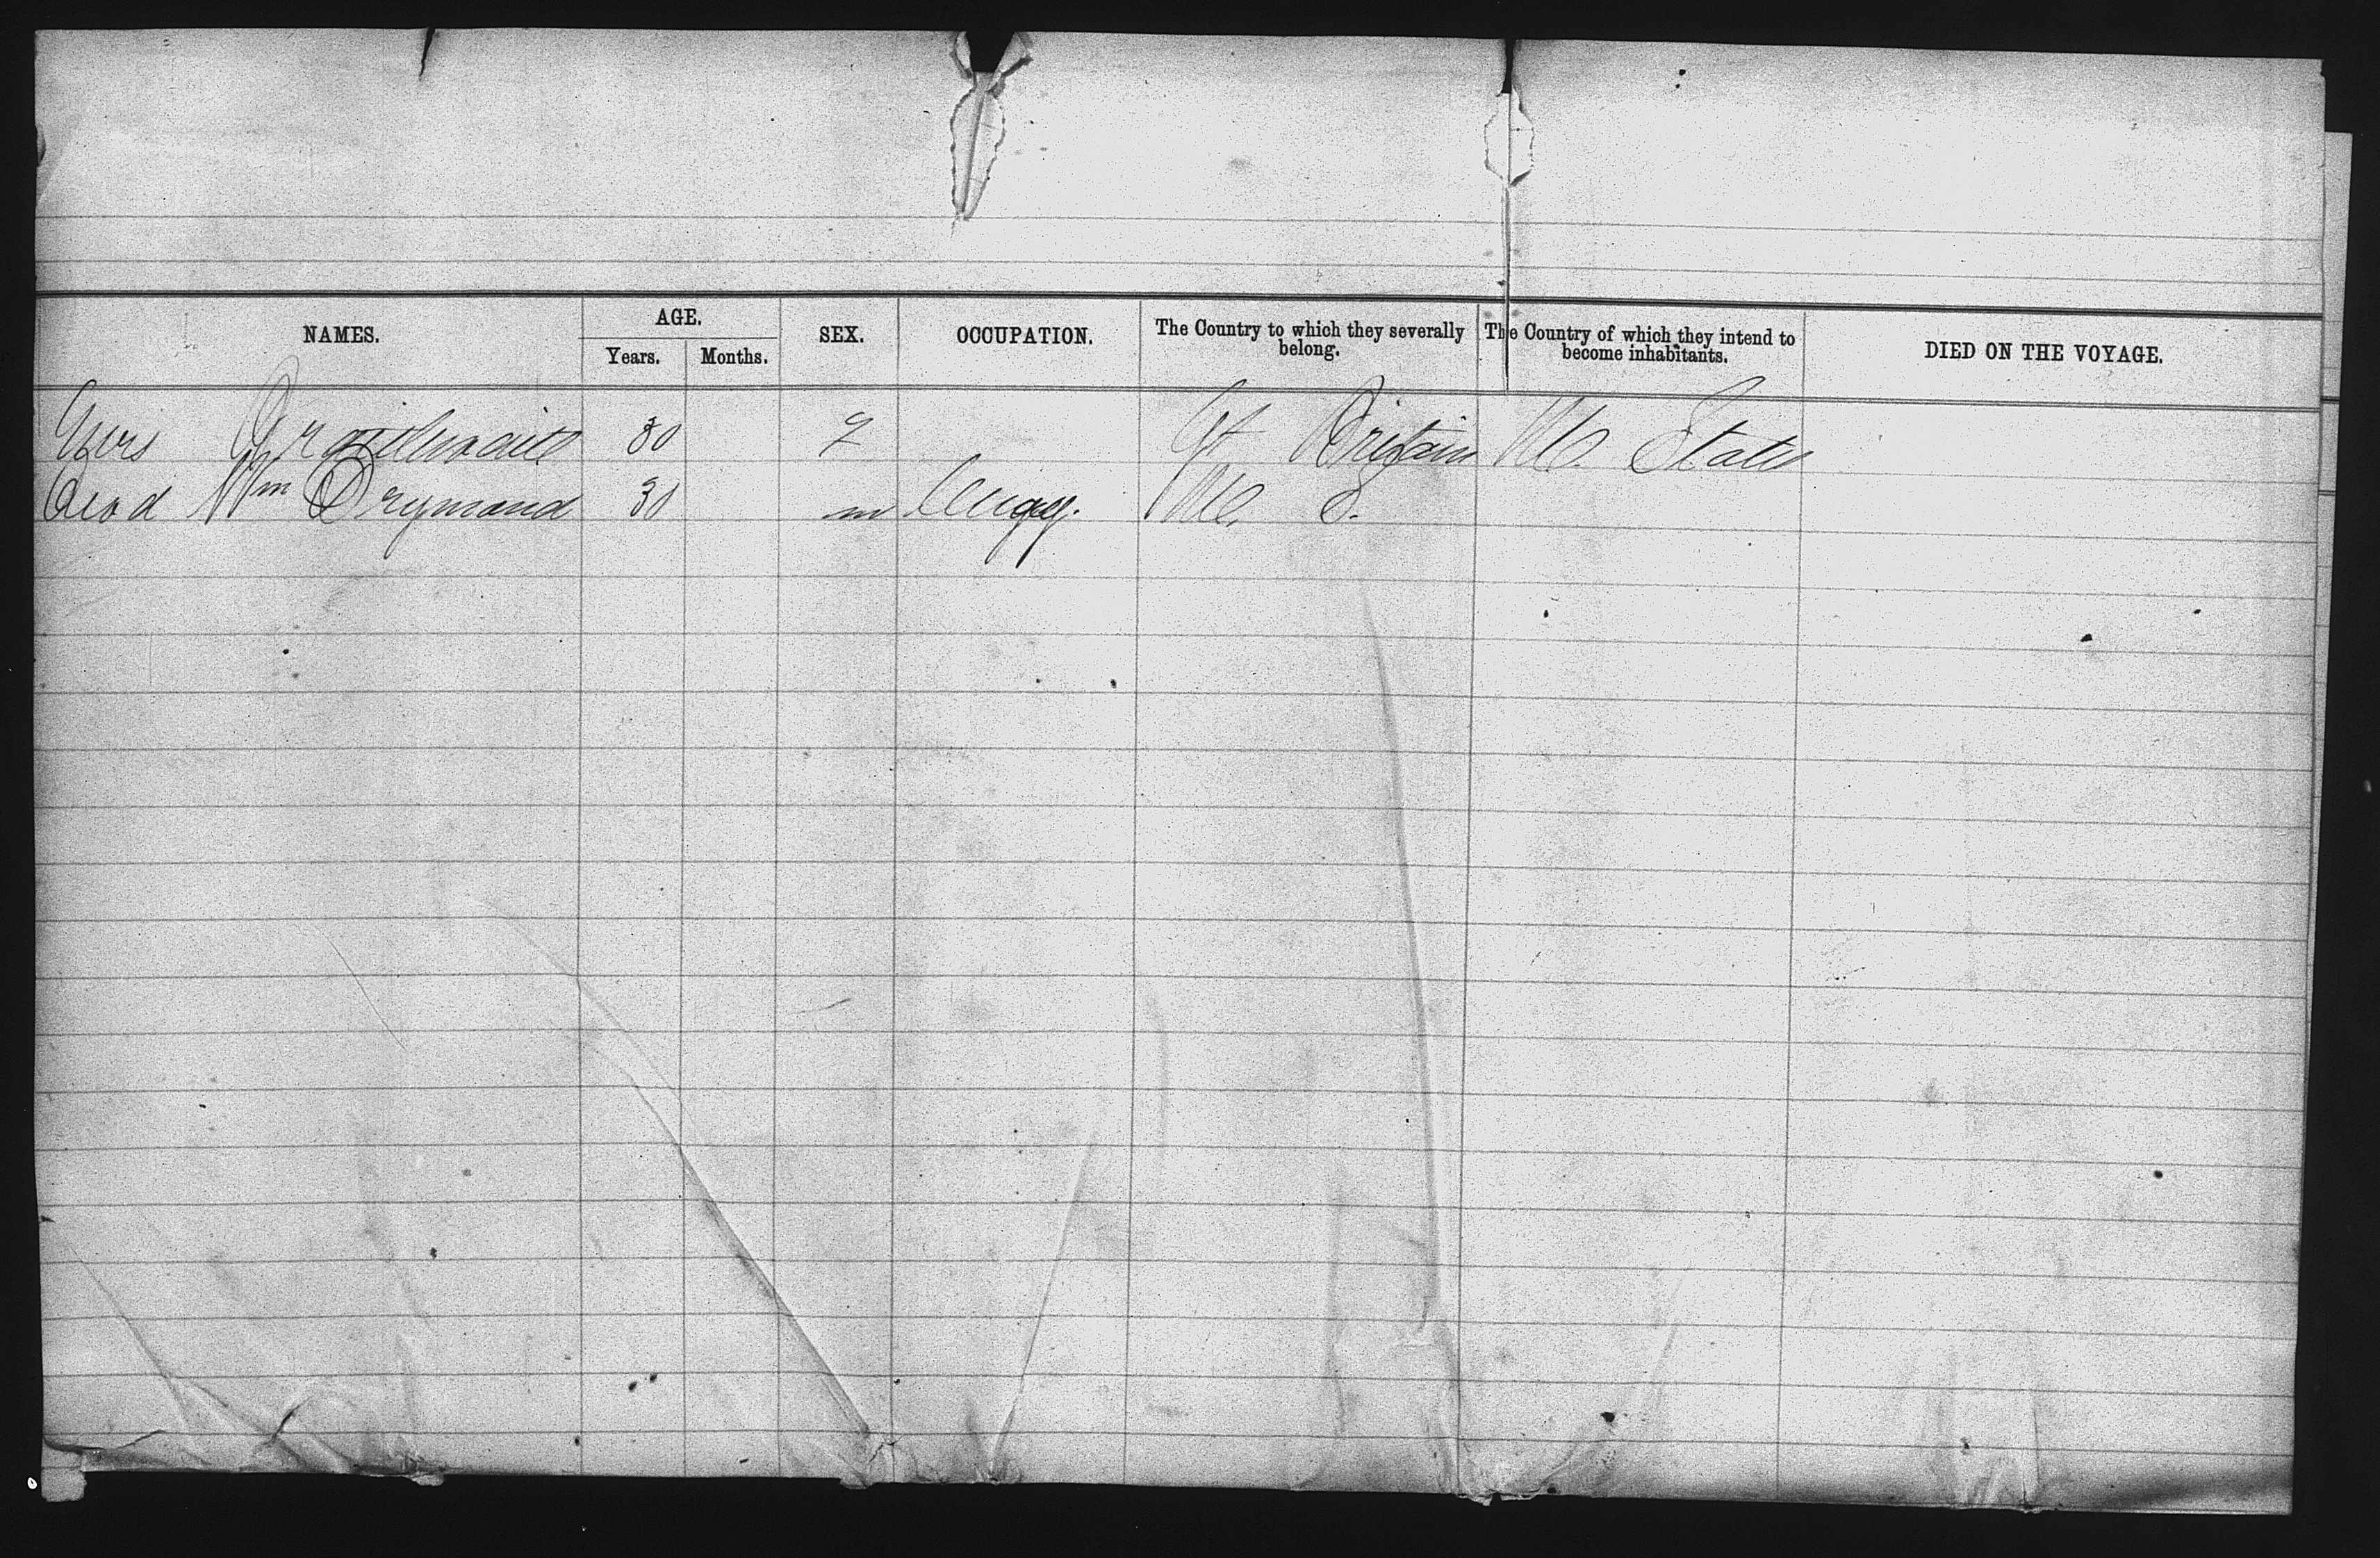 NAMES. AGE. SEX. OCCUPATION. The Country to which they severally belong. The Country of which they intend to become inhabitants. DIED ON THE VOYAGE.
Years. Months.
Mrs 30 f Gt Britain U. States
Wm Drymond 30 m U. S.